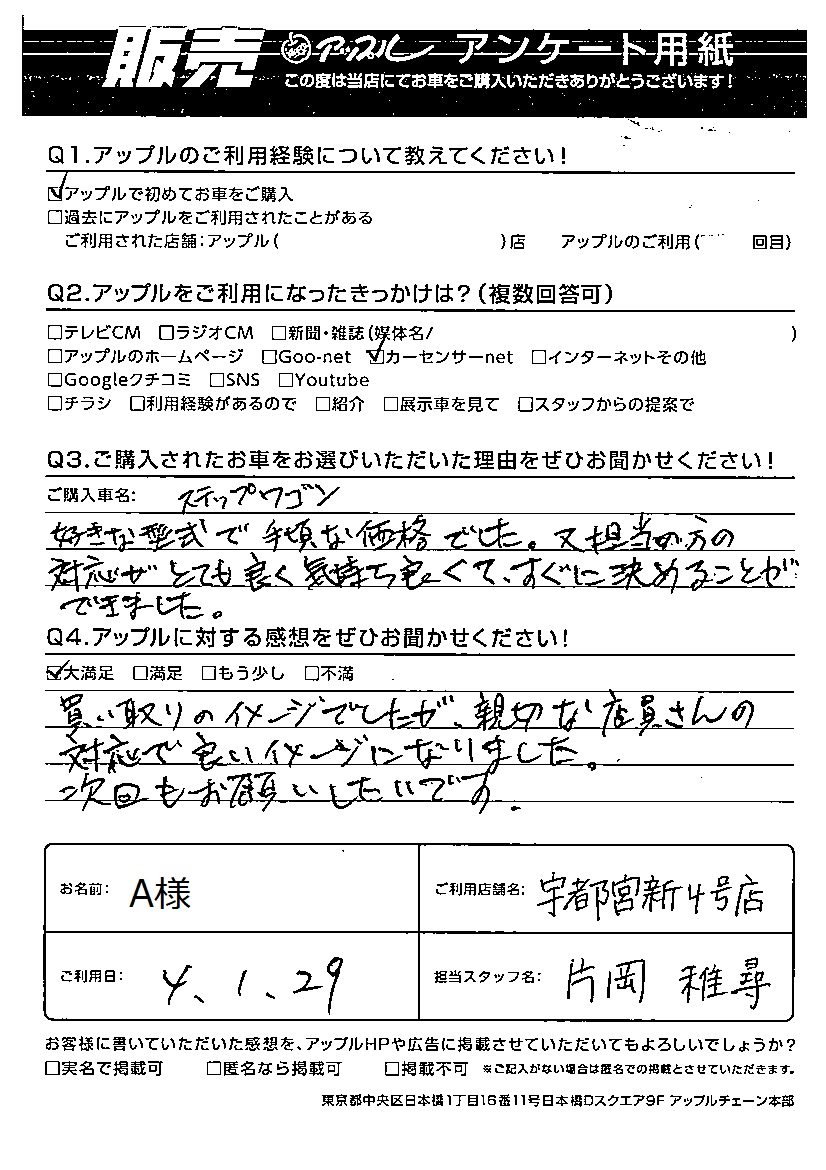 販売 アップル アンケート用紙
この度は当店にてお車をご購入いただきありがとうございます!
Q1.アップルのご利用経験について教えてください!
☑アップルで初めてお車をご購入
□過去にアップルをご利用されたことがある
ご利用された店舗:アップル( )店 アップルのご利用( 回目)
Q2.アップルをご利用になったきっかけは?(複数回答可)
□テレビCM □ラジオCM □新聞・雑誌(媒体名/ )
□アップルのホームページ □Goo-net ☑カーセンサーnet □インターネットその他
□Googleクチコミ □SNS □Youtube
□チラシ □利用経験があるので □紹介 □展示車を見て □スタッフからの提案で
Q3.ご購入されたお車をお選びいただいた理由をぜひお聞かせください!
ご購入車名: ステップワゴン
好きな型式で手頃な価格でした。又担当の方の
対応がとても良く気持ち良くて、すぐに決めることが
できました。
Q4.アップルに対する感想をぜひお聞かせください!
☑大満足 □満足 □もう少し □不満
買い取りのイメージでしたが、親切な店員さんの
対応で良いイメージになりました。
次回もお願いしたいです.
お名前: A様 ご利用店舗名: 宇都宮新4号店
ご利用日: 4、1、29 担当スタッフ名: 片岡 稚尋
お客様に書いていただいた感想を、アップルHPや広告に掲載させていただいてもよろしいでしょうか?
□実名で掲載可 □匿名なら掲載可 □掲載不可 ※ご記入がない場合は匿名での掲載とさせていただきます。
東京都中央区日本橋1丁目16番11号日本橋Dスクエア9F アップルチェーン本部